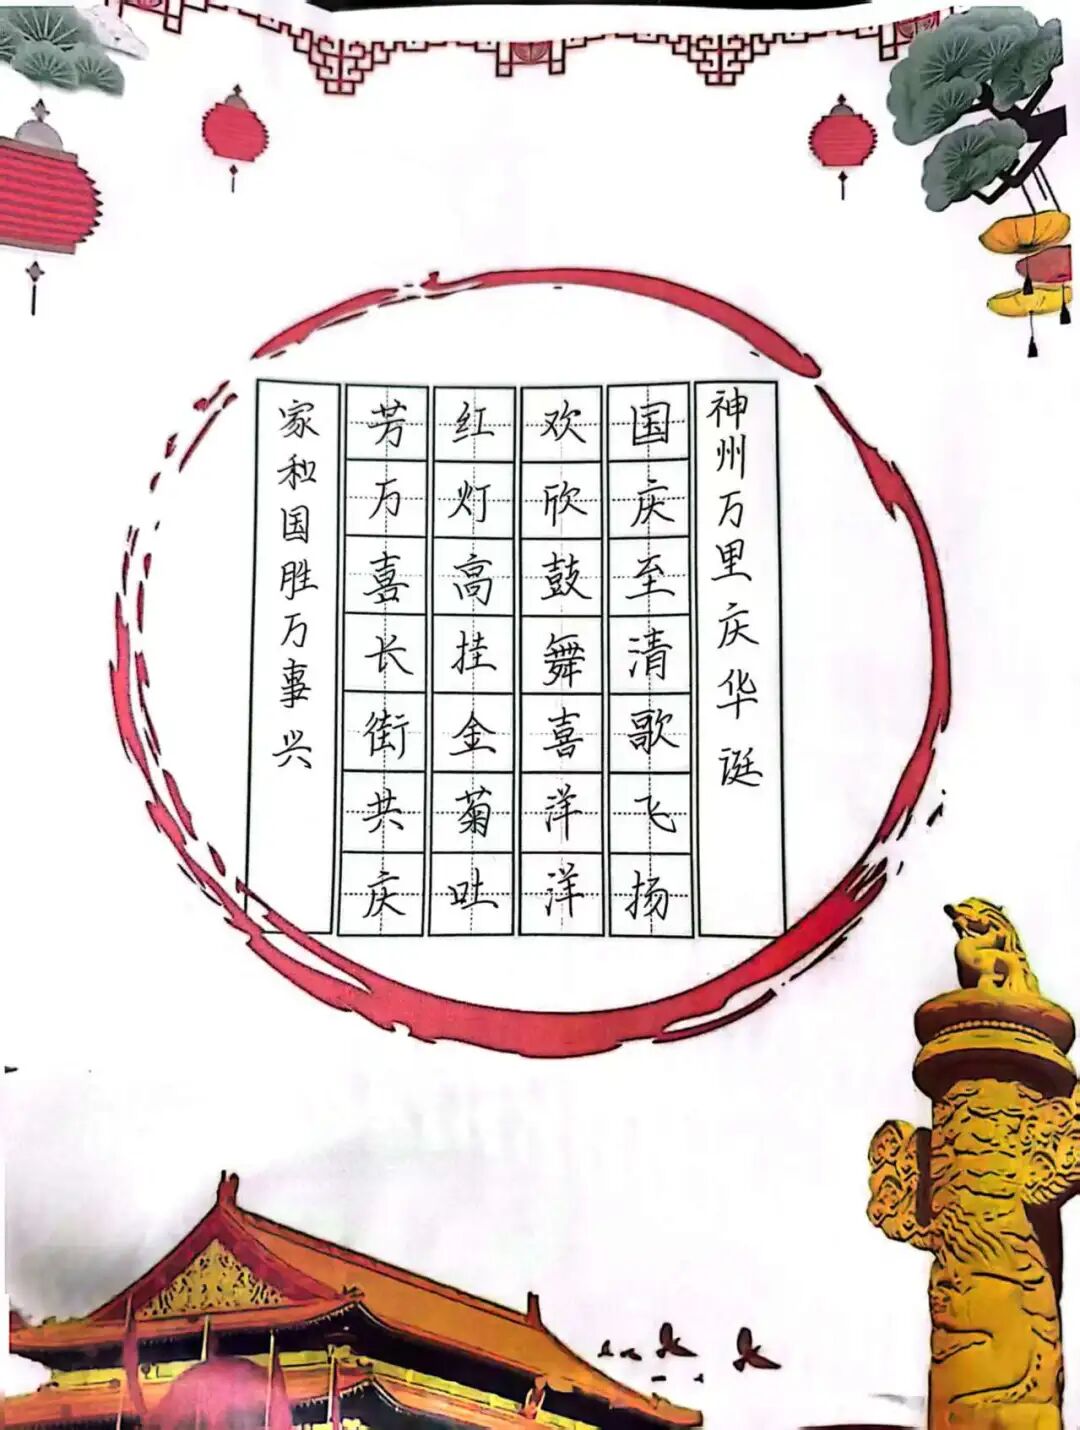 神州万里庆华诞
国庆至清歌飞扬
欢欣鼓舞喜洋洋
红灯高挂金菊吐
芳万喜长街共庆
家和国胜万事兴